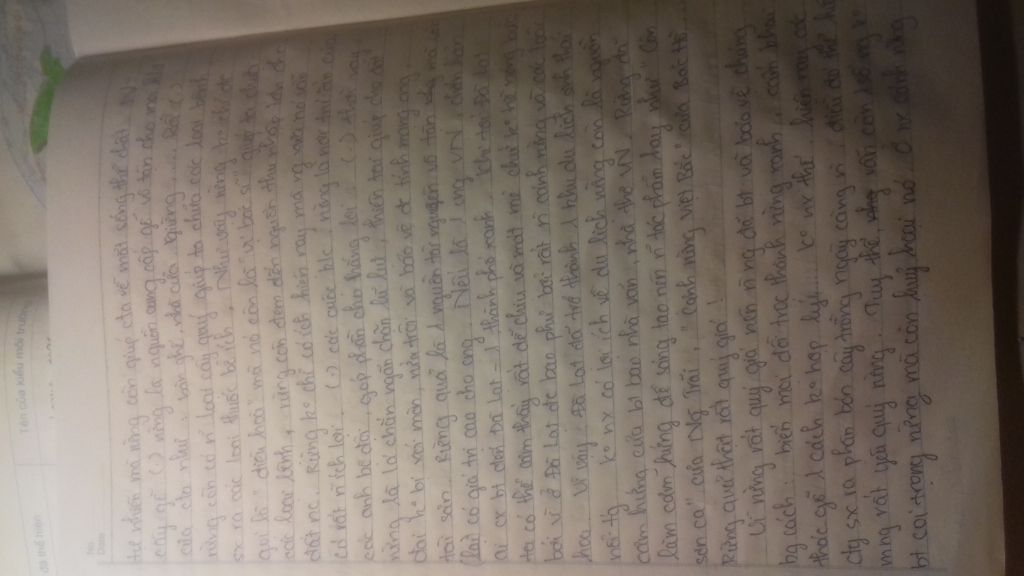 No.
Date
tự nhiên mà rừng còn giúp cta về mặt sống thế đất. N
cây gỗ (.) rừng là nguồn cung cấp gỗ vô tận cho mọi
của cta như: bàn ghế, nhà cửa, giường .... Rồi (.)
rừng còn có n loại cây quý giúp ta chữa các loại bệnh
sx ra các loại thuốc bổ ích. Như vậy rừng ko chỉ đc
gọi là "điều hoà" mà nó còn là "vị bác sĩ" giúp ta chữa
các loại bệnh, rừng còn đem đến nguồn thu nhập lớn cho
đất nc. Rừng ko chỉ có ích hiện nay mà ng xưa nó vẫn
có rất n ích lợi. (.) các cuộc k/c, rừng là nơi trú ẩn của
các anh bộ đội, góp phần cho thắng lợi. (.) thời nay
rừng là lá chắn ngăn chặn lũ lụt, thiên tai giúp cho đất
đai ko bị xói mòn, rửa trôi và bảo vệ đc tính mạng con ng,
tài sản. Rừng quả là 1 nguồn tài nguyên vô tận mà
lại có giá trị cao cho con ng. Nếu là 1 ng VN, chắc hẳn
ai cx bt đến Đà Lạt - 1 thành phố xanh. Khi tới Đà Lạt
ta có thể cảm thấy rất dễ chịu và mát mẻ chứ ko hề nóng bức
bởi vì ở Đà Lạt đc bao phủ bởi rất n cánh rừng và các loài
hoa. Vì vậy, Đà Lạt đã trở thành 1 khu du lịch sinh thái
nổi tg
Ko nx có lợi ích về du lịch rừng còn là nguồn
cảm hứng của bt bao nhà văn, nhà thơ VN. Rừng đã
làm cảm hứng để sáng tạo nên n tác phẩm hay như "Côn
sơn ca" của Ng Trãi, "Cảnh rừng Việt Bắc" của Bác Hồ.
Rừng quả thật rất quý giá!
Vì rừng rất quý giá nên n ng đã bt và bảo vệ chúng
bg cách: biến mọi đồi trọc thành rừng xanh, cấm khai
thác gỗ 1 cách ko hợp lý,... Ko nx thế, hiện nay các
cty sx ra phân bón cây trồng ngày càng n, điều đó thể hiện
mng rất yêu quý rừng. Tuy thế, vẫn còn 1 số ng ko
bt coi trọng rừng mà còn huỷ hoại nó. Ở nx cánh rừng
Tiến của kiểu môi trường
đã thể hiện